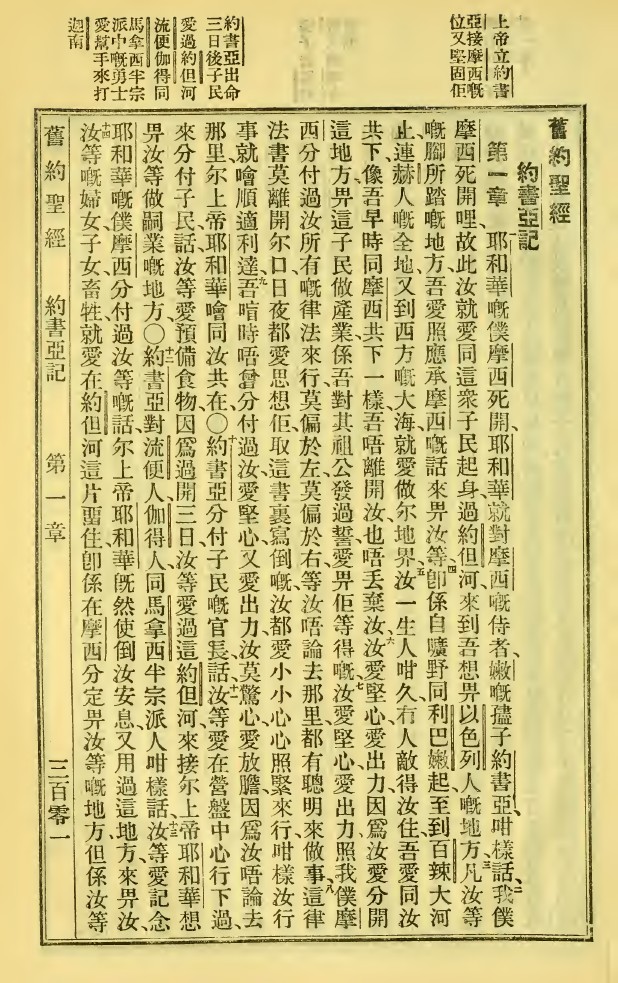 上帝立約書
亞接摩西嘅
位又堅固佢
約書亞出命
三日後子民
愛過約但河
流便伽得同
馬拿西半宗
派中嘅勇士
愛幫手來打
迦南
舊約聖經
約書亞記
第一章 一耶和華嘅僕摩西死開、耶和華就對摩西嘅侍者、嫩嘅孻子約書亞、咁樣話、二我僕
摩西死開哩、故此汝就愛同這衆子民起身、過約但河、來到吾想畀以色列人嘅地方、三凡汝等
嘅腳所踏嘅地方、吾愛照應承摩西嘅話來畀汝等、四卽係自曠野同利巴嫩起、至到百辣大河
止、連赫人嘅全地、又到西方嘅大海、就愛做尔地界、五汝一生人咁久、冇人敵得汝住、吾愛同汝
共下、像吾早時同摩西共下一樣、吾唔離開汝、也唔丢棄汝、六汝愛堅心、愛出力、因爲汝愛分開
這地方、畀這子民做產業、係吾對其祖公發過誓、愛畀佢等得嘅、七汝愛堅心、愛出力、照我僕摩
西分付過汝所有嘅律法來行、莫偏於左、莫偏於右、等汝唔論去那里、都有聰明來做事、八這律
法書、莫離開尔口、日夜都愛思想佢、取這書裏寫倒嘅、汝都愛小小心心、照緊來行、咁樣汝行
事就噲順適利達、九吾喑時唔曾分付過汝、愛堅心、又愛出力、汝莫驚心、愛放膽、因爲汝唔論去
那里、尔上帝耶和華噲同汝共在、〇十約書亞分付子民嘅官長、話、十一汝等愛在營盤中心行下過、
來分付子民、話、汝等愛預備食物、因爲過開三日、汝等愛過這約但河、來接尔上帝耶和華想
畀汝等做嗣業嘅地方、〇十二約書亞對流便人、伽得人、同馬拿西半宗派人、咁樣話、十三汝等愛記念
耶和華嘅僕摩西分付過汝等嘅話、尔上帝耶和華旣然使倒汝安息、又用過這地方、來畀汝、
十四汝等嘅婦女、子女、畜牲、就愛在約但河這片𠹌住、卽係在摩西分定畀汝等嘅地方、但係汝等
舊約聖經 約書亞記 第一章 三百零一